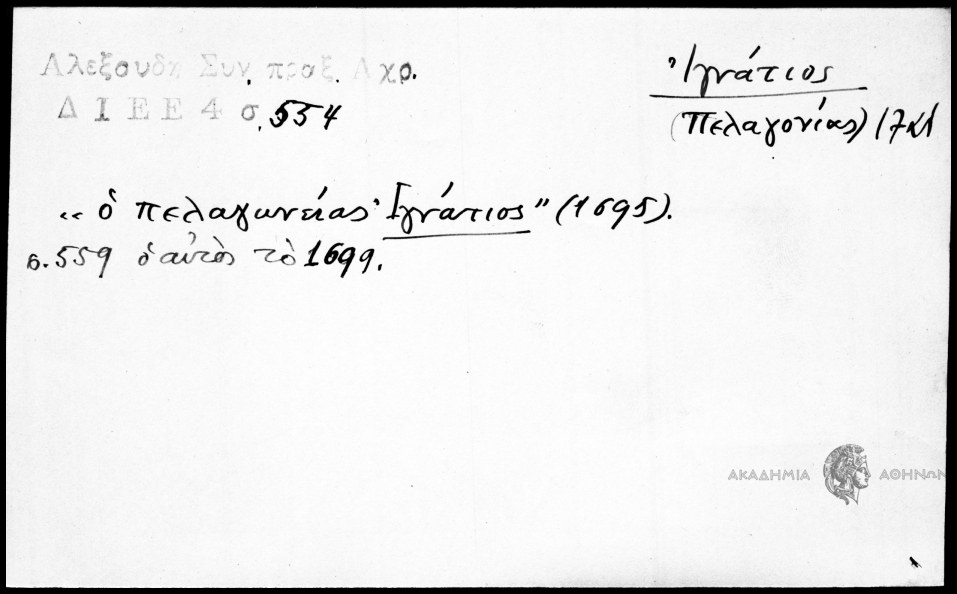 Αλεξουδη Συν. πραξ. Αχρ.
ΔΙΕΕ 4 σ. 554
Ἰγνάτιος
(Πελαγονίας) 17
“ ὁ πελαγωνείας Ἰγνάτιος ” (1695).
σ. 559 ὁ αὐτὸς τὸ 1699.
ΑΚΑΔΗΜΙΑ ΑΘΗΝΩΝ